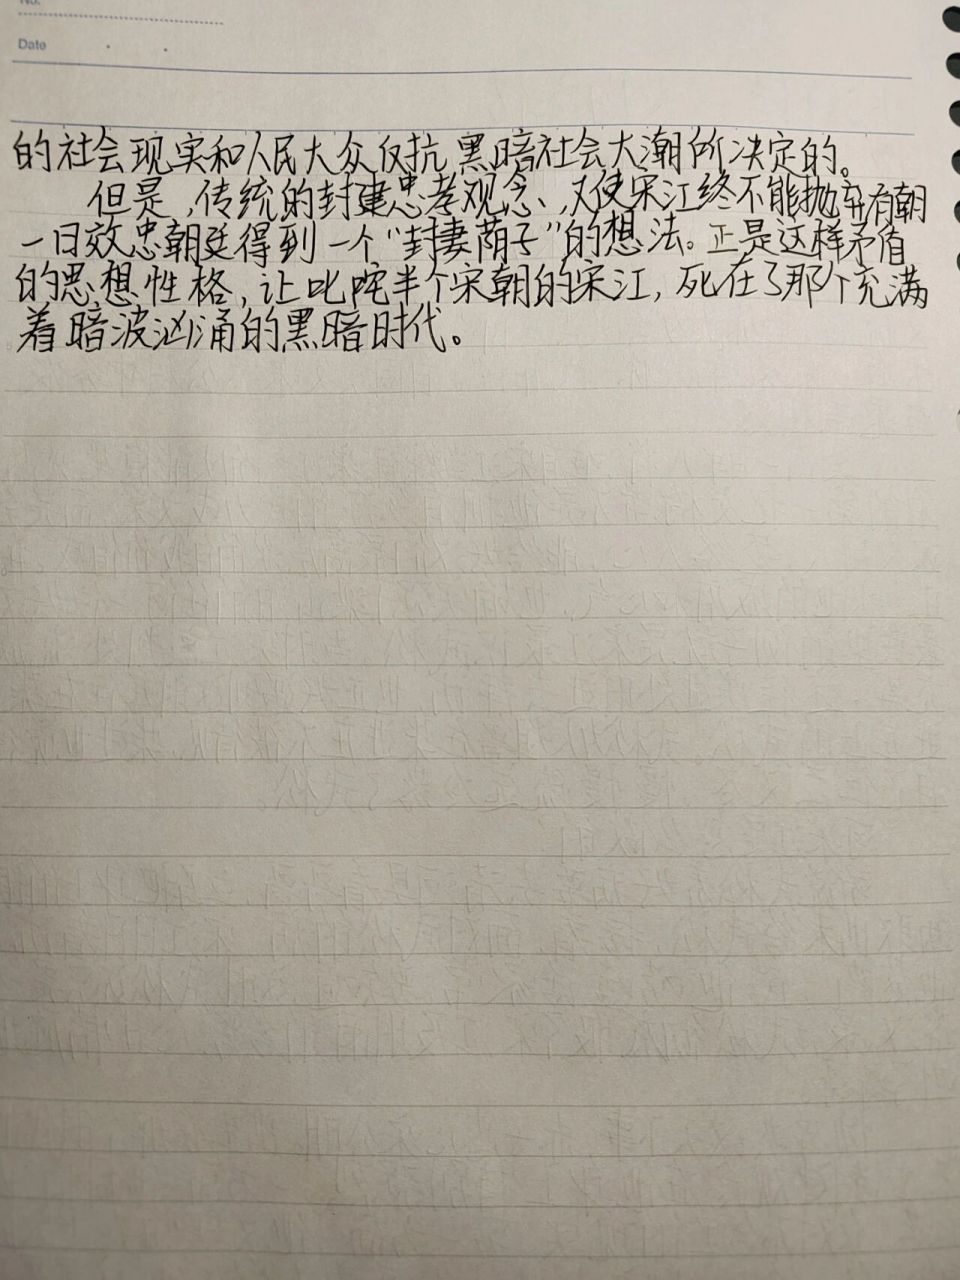 No.
Date
的社会现实和人民大众反抗黑暗社会大潮所决定的。
但是，传统的封建忠孝观念，又使宋江终不能抛弃有朝
一日效忠朝廷得到一个“封妻荫子”的想法。正是这样矛盾
的思想性格，让叱咤半个宋朝的宋江，死在了那个充满
着暗波汹涌的黑暗时代。